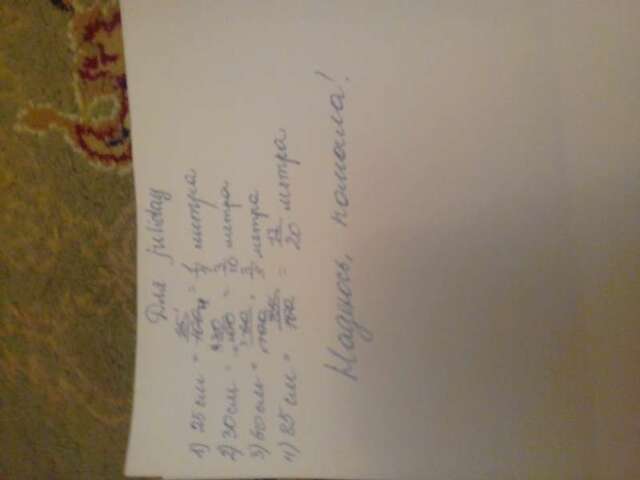 Для juliday
1) 25 см = 25/100 = 1/4 метра
2) 30 см = 30/100 = 3/10 метра
3) 60 см = 60/100 = 3/5 метра
4) 85 см = 85/100 = 17/20 метра
Надеюсь, помогла!